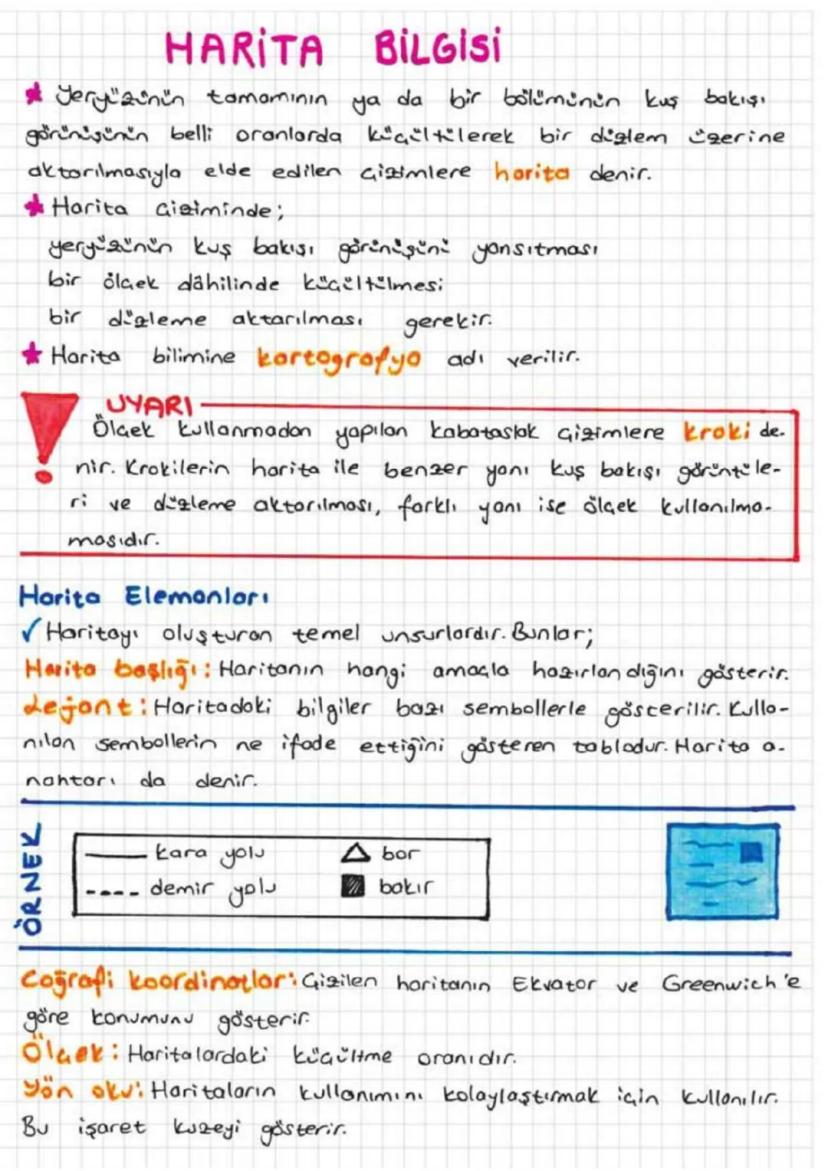 HARİTA BİLGİSİ
★ Yeryüzünün tamamının ya da bir bölümünün kuş bakışı
görünüşünün belli oranlarda küçültülerek bir düzlem üzerine
aktarılmasıyla elde edilen çizimlere harita denir.
★ Harita çiziminde;
yeryüzünün kuş bakışı görünüşünü yansıtması
bir ölçek dâhilinde küçültülmesi
bir düzleme aktarılması gerekir.
★ Harita bilimine kartografya adı verilir.
UYARI
Ölçek kullanmadan yapılan kabataslak çizimlere kroki de-
nir. Krokilerin harita ile benzer yanı kuş bakışı görüntüle-
ri ve düzleme aktarılması, farklı yanı ise ölçek kullanılma-
masıdır.
Harita Elemanları
✓ Haritayı oluşturan temel unsurlardır. Bunlar;
Harita başlığı: Haritanın hangi amaçla hazırlandığını gösterir.
Lejant: Haritadaki bilgiler bazı sembollerle gösterilir. Kulla-
nılan sembollerin ne ifade ettiğini gösteren tablodur. Harita a-
nahtarı da denir.
ÖRNEK
kara yolu
bor
demir yolu
bakır
Coğrafi koordinatlar: Çizilen haritanın Ekvator ve Greenwich'e
göre konumunu gösterir.
Ölçek: Haritalardaki küçültme oranıdır.
Yön oku: Haritaların kullanımını kolaylaştırmak için kullanılır.
Bu işaret kuzeyi gösterir.